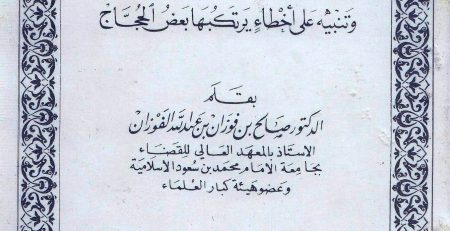 وَتَنبيْه عَلى أخْطاءٍ يَرتكبهَا بَعضُ الحُجَّاج
بقلم
الدكتور صالح بن فوزان بن عبدالله الفوزان
الاستاذ بالمعهد العالي للقضاء
بجامعة الامام محمد بن سعود الاسلامية
وعضو هيئة كبار العلماء